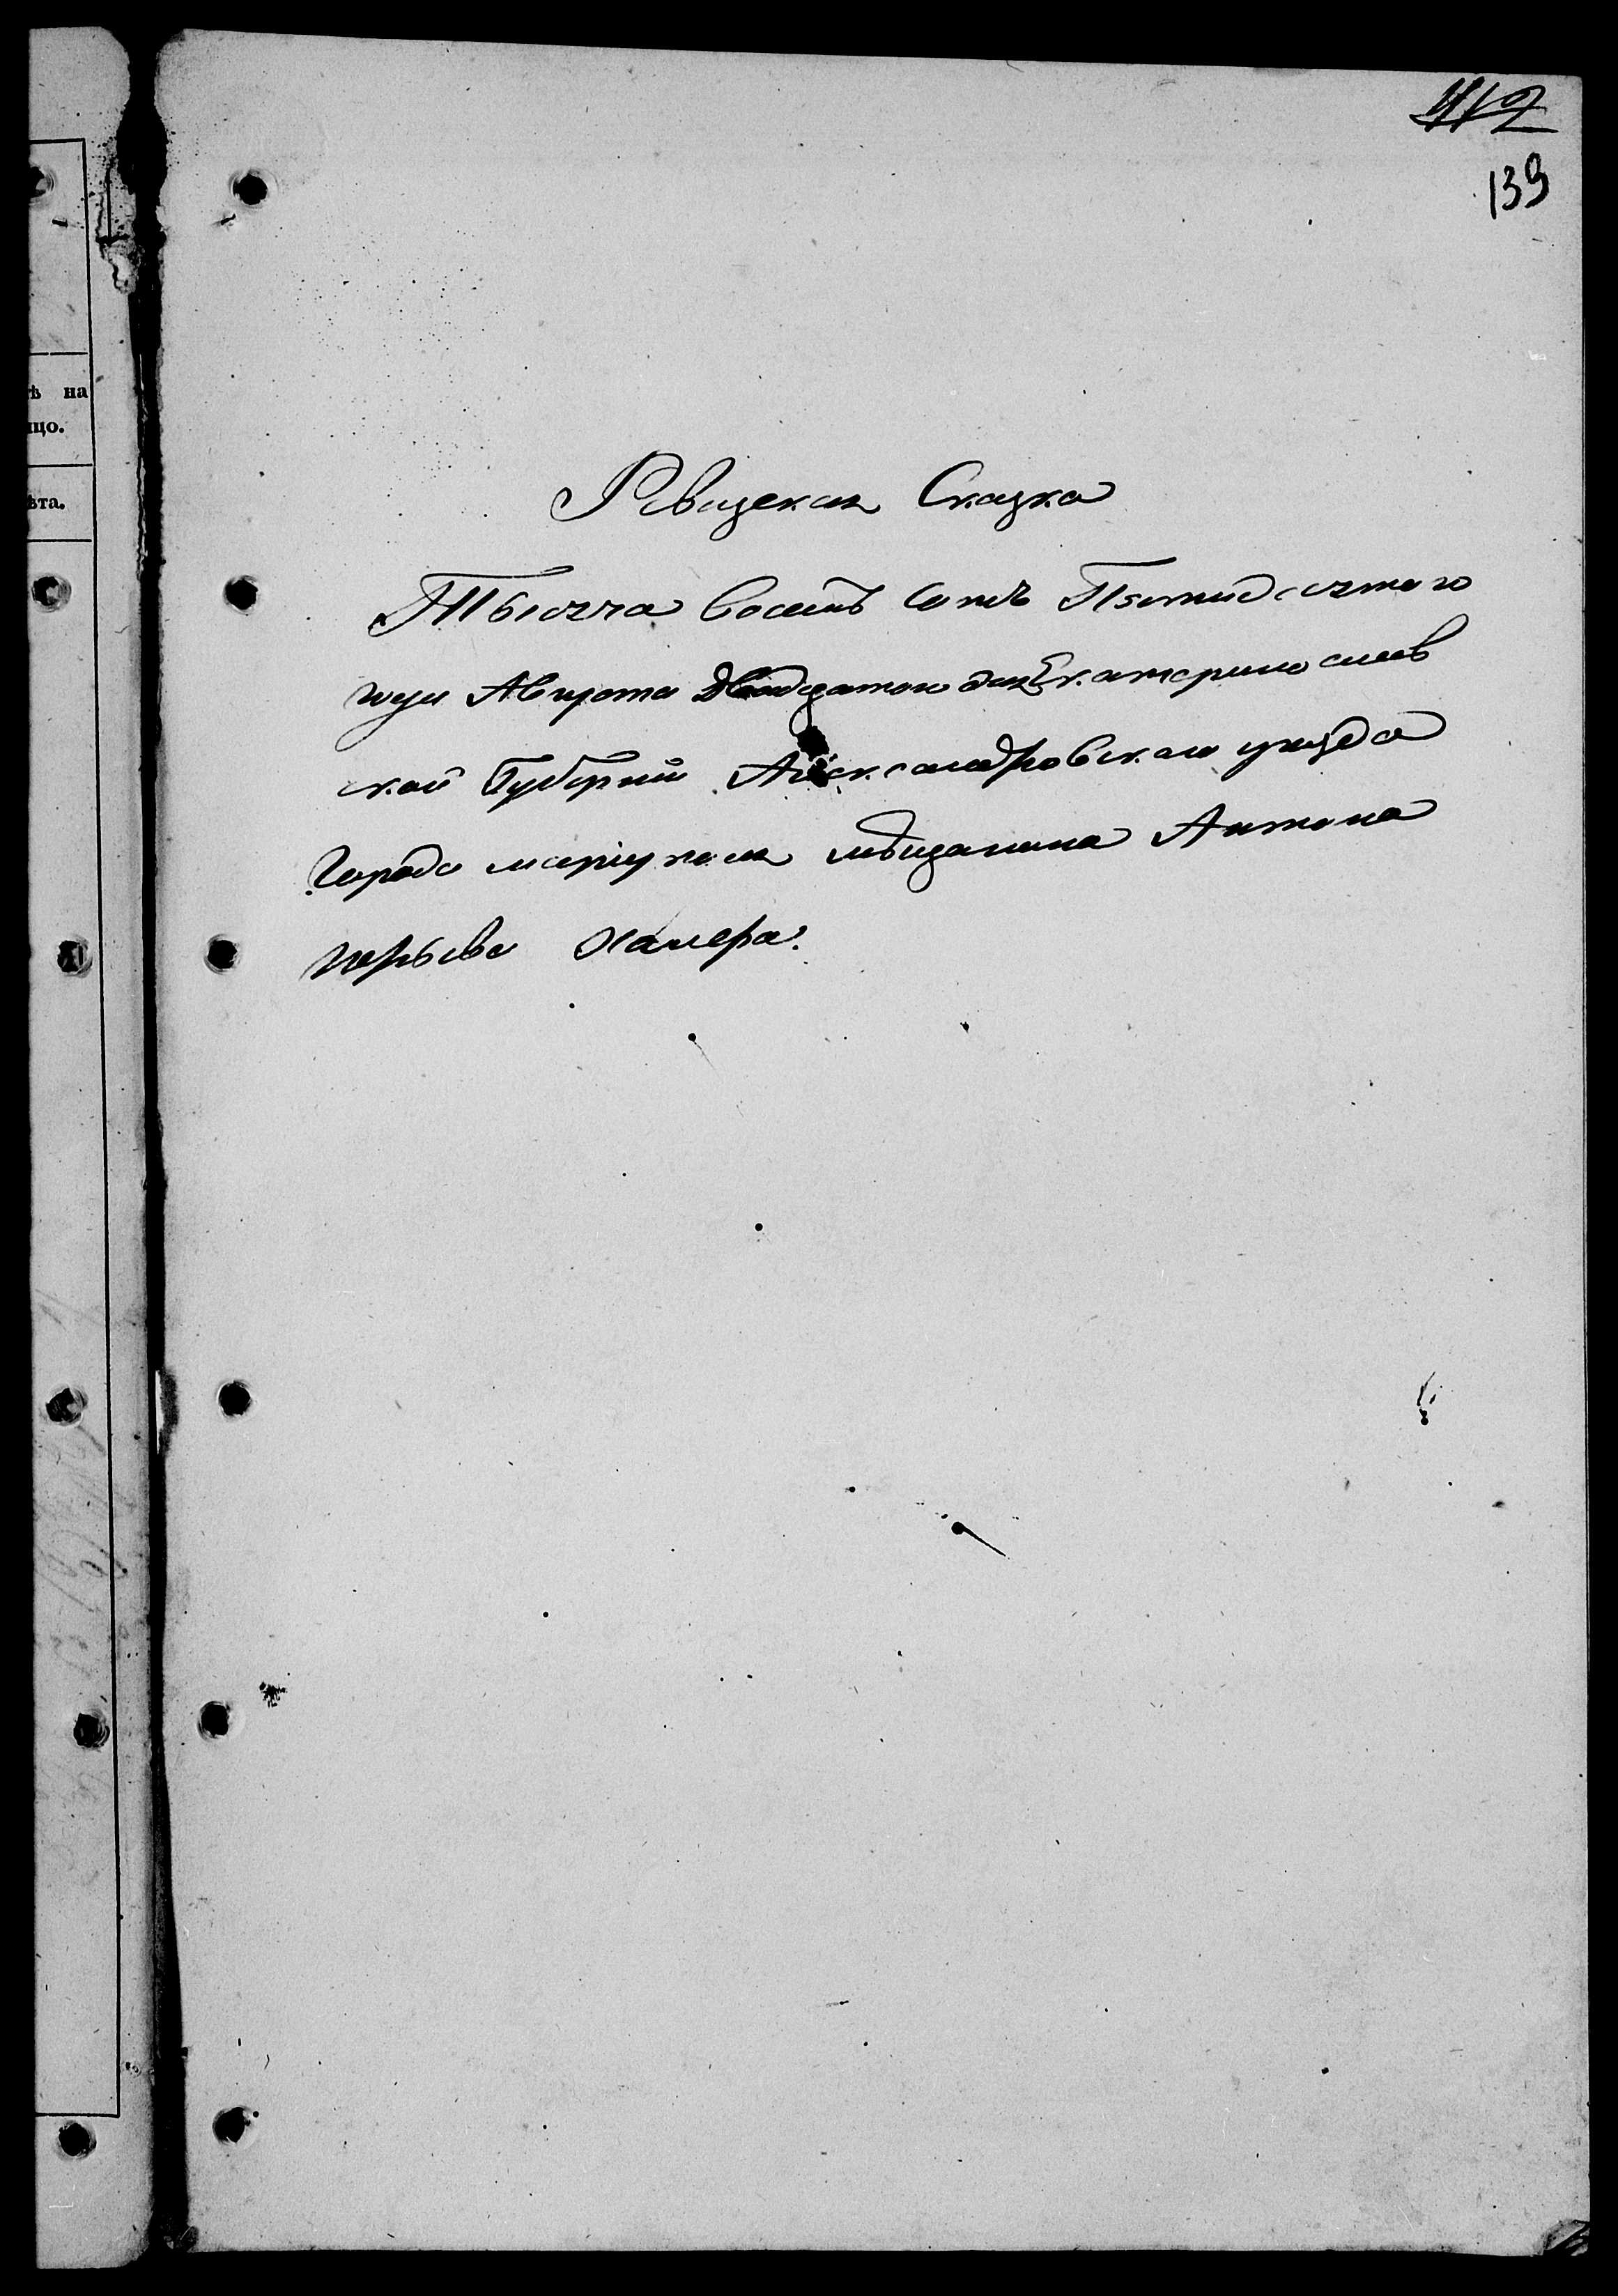 112
139
ѣ на
цо.
ѣта.
Ревизская Сказка
Тысяча восемь сотъ Пятидесятаго
года Августа Двадцатаго дня Екатеринослав
ской Губерніи Александровскаго уезда
Города мариуполя мѣщанина Антона